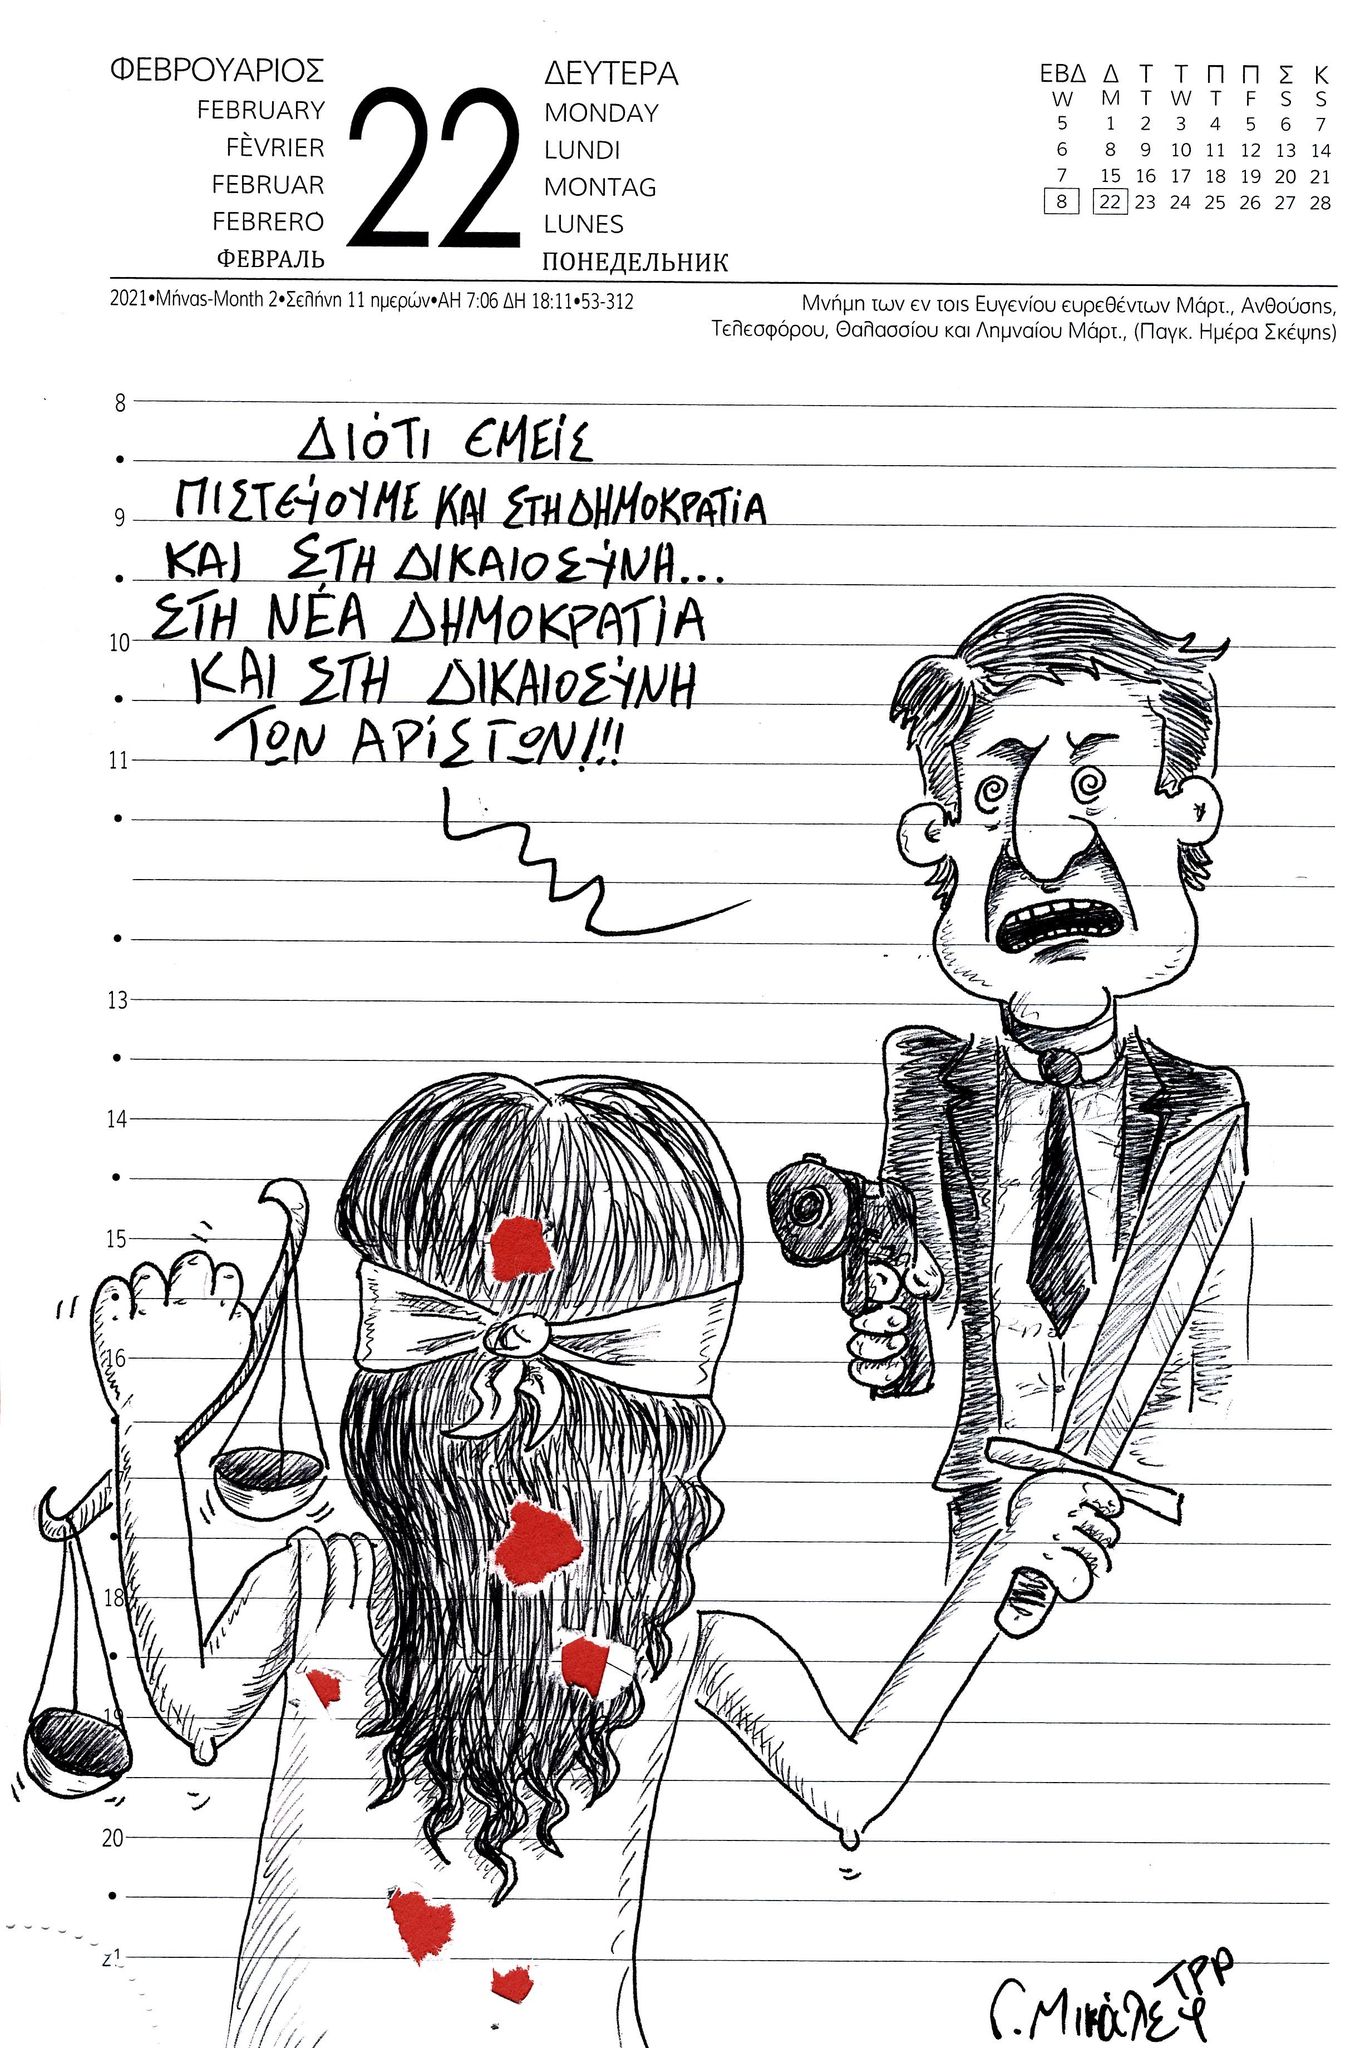 ΦΕΒΡΟΥΑΡΙΟΣ
FEBRUARY
FÈVRIER
FEBRUAR
FEBRERO
ФЕВРАЛЬ
22
ΔΕΥΤΕΡΑ
MONDAY
LUNDI
MONTAG
LUNES
ПОНЕДЕЛЬНИК
ΕΒΔ Δ Τ Τ Π Π Σ Κ
W M T W T F S S
5 1 2 3 4 5 6 7
6 8 9 10 11 12 13 14
7 15 16 17 18 19 20 21
8 22 23 24 25 26 27 28
2021•Μήνας-Month 2•Σελήνη 11 ημερών•ΑΗ 7:06 ΔΗ 18:11•53-312
Μνήμη των εν τοις Ευγενίου ευρεθέντων Μάρτ., Ανθούσης,
Τελεσφόρου, Θαλασσίου και Λημναίου Μάρτ., (Παγκ. Ημέρα Σκέψης)
8
ΔΙΌΤΙ ΕΜΕΊΣ
ΠΙΣΤΕΎΟΥΜΕ ΚΑΙ ΣΤΗ ΔΗΜΟΚΡΑΤΊΑ
9
ΚΑΙ ΣΤΗ ΔΙΚΑΙΟΣΎΝΗ...
ΣΤΗ ΝΈΑ ΔΗΜΟΚΡΑΤΊΑ
10
ΚΑΙ ΣΤΗ ΔΙΚΑΙΟΣΎΝΗ
ΤΩΝ ΑΡΊΣΤΩΝ!!!
11
13
14
15
16
18
19
20
21
Γ. Μικάλεφ
ΤΡΡ